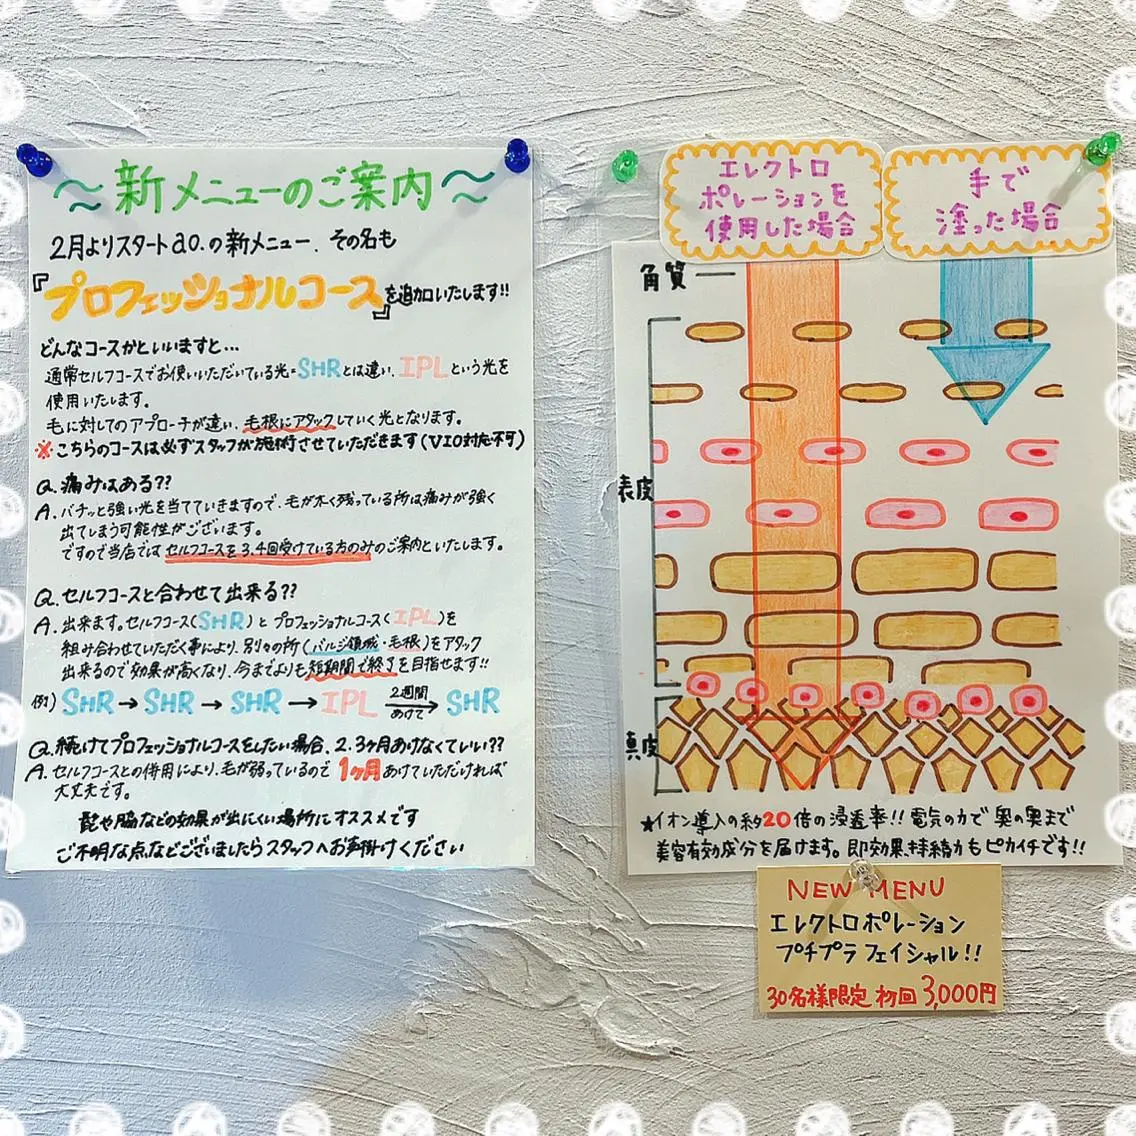 〜新メニューのご案内〜
2月よりスタートao.の新メニュー、その名も
『プロフェッショナルコース』を追加いたします!!
どんなコースかといいますと...
通常セルフコースでお使いいただいている光=SHRとは違い、IPLという光を
使用いたします。
毛に対してのアプローチが違い、毛根にアタックしていく光となります。
※こちらのコースは必ずスタッフが施術させていただきます(VIO対応不可)
Q.痛みはある??
A.バチッと強い光を当てていきますので、毛が太く残っている所は痛みが強く
出てしまう可能性がございます。
ですので当店ではセルフコースを3.4回受けている方のみのご案内といたします。
Q.セルフコースと合わせて出来る??
A.出来ます。セルフコース(SHR)とプロフェッショナルコース(IPL)を
組み合わせていただく事により、別々の所(バルジ領域・毛根)をアタック
出来るので効果が高くなり、今までよりも短期間で終了を目指せます!!
例)SHR→SHR→SHR→IPL 2週間あけて→SHR
Q.続けてプロフェッショナルコースをしたい場合、2.3ヶ月あけなくていい??
A.セルフコースとの併用により、毛が弱っているので1ヶ月あけていただければ
大丈夫です。
髭や脇などの効果が出にくい場所にオススメです
ご不明な点などございましたらスタッフへお声掛けください
エレクトロ
ポレーションを
使用した場合
手で
塗った場合
角質
表皮
真皮
★イオン導入の約20倍の浸透率!!電気の力で奥の奥まで
美容有効成分を届けます。即効果、持続力もピカイチです!!
NEW MENU
エレクトロポレーション
プチプラフェイシャル!!
30名様限定 初回3,000円